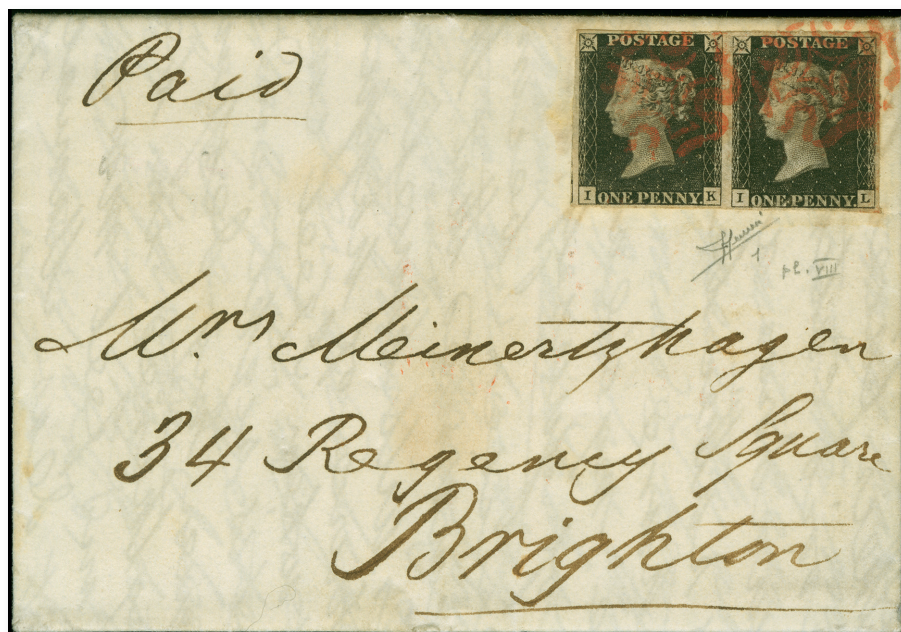 Paid
POSTAGE POSTAGE
I ONE PENNY. K I ONE PENNY. L
1 pl. VIII
Mrs Meinertzhagen
34 Regency Square
Brighton